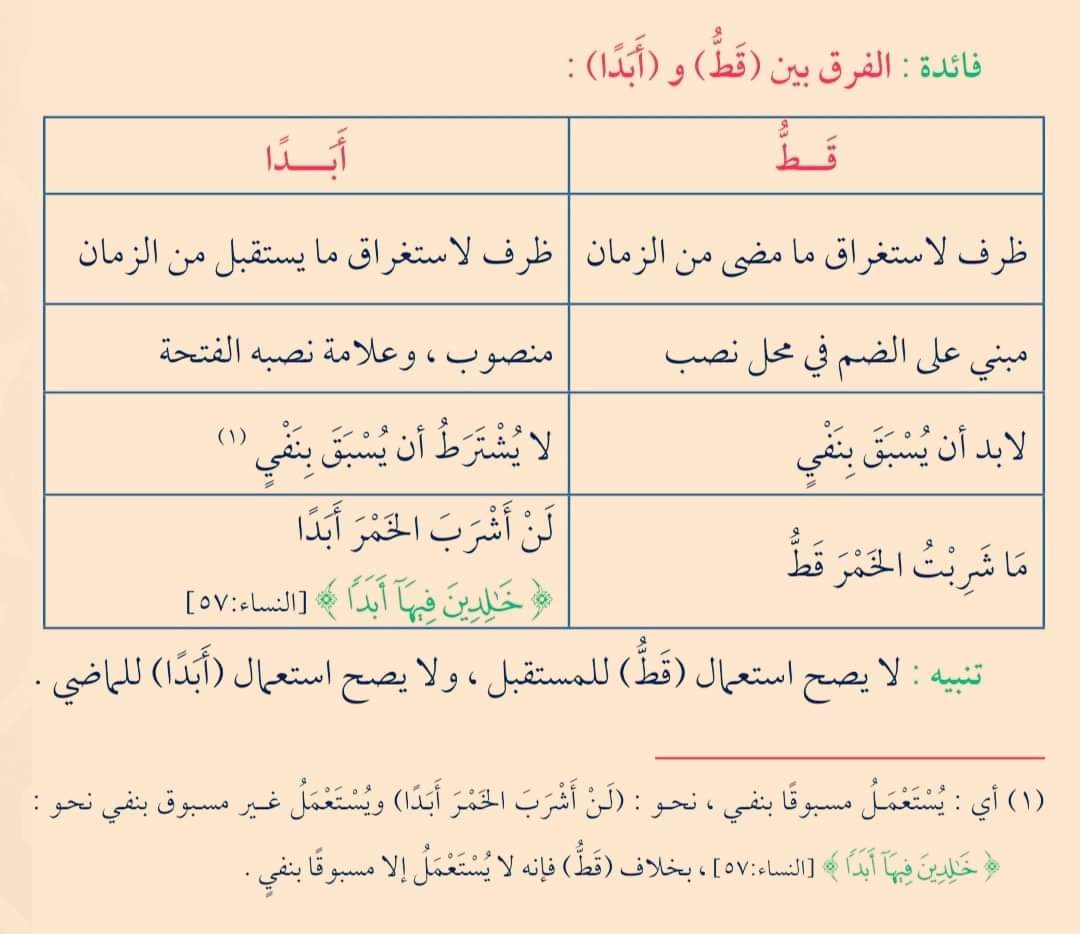 فائدة : الفرق بين (قَطُّ) و (أَبَدًا) :
قَـــطُّ
أَبَـــدًا
ظرف لاستغراق ما مضى من الزمان
ظرف لاستغراق ما يستقبل من الزمان
مبني على الضم في محل نصب
منصوب ، وعلامة نصبه الفتحة
لابد أن يُسْبَقَ بِنَفْيٍ
لا يُشْتَرَطُ أن يُسْبَقَ بِنَفْيٍ (١)
مَا شَرِبْتُ الخَمْرَ قَطُّ
لَنْ أَشْرَبَ الخَمْرَ أَبَدًا
﴿ خَٰلِدِينَ فِيهَآ أَبَدًا ﴾ [النساء:٥٧]
تنبيه : لا يصح استعمال (قَطُّ) للمستقبل ، ولا يصح استعمال (أَبَدًا) للماضي .
(١) أي : يُسْتَعْمَـلُ مسبوقًا بنفـي ، نحـو : (لَـنْ أَشْرَبَ الخَمْرَ أَبَدًا) ويُسْتَعْمَلُ غـير مسـبوق بنفـي نحـو :
﴿ خَٰلِدِينَ فِيهَآ أَبَدًا ﴾ [النساء:٥٧] ، بخلاف (قَطُّ) فإنه لا يُسْتَعْمَلُ إلا مسبوقًا بنفيٍ .